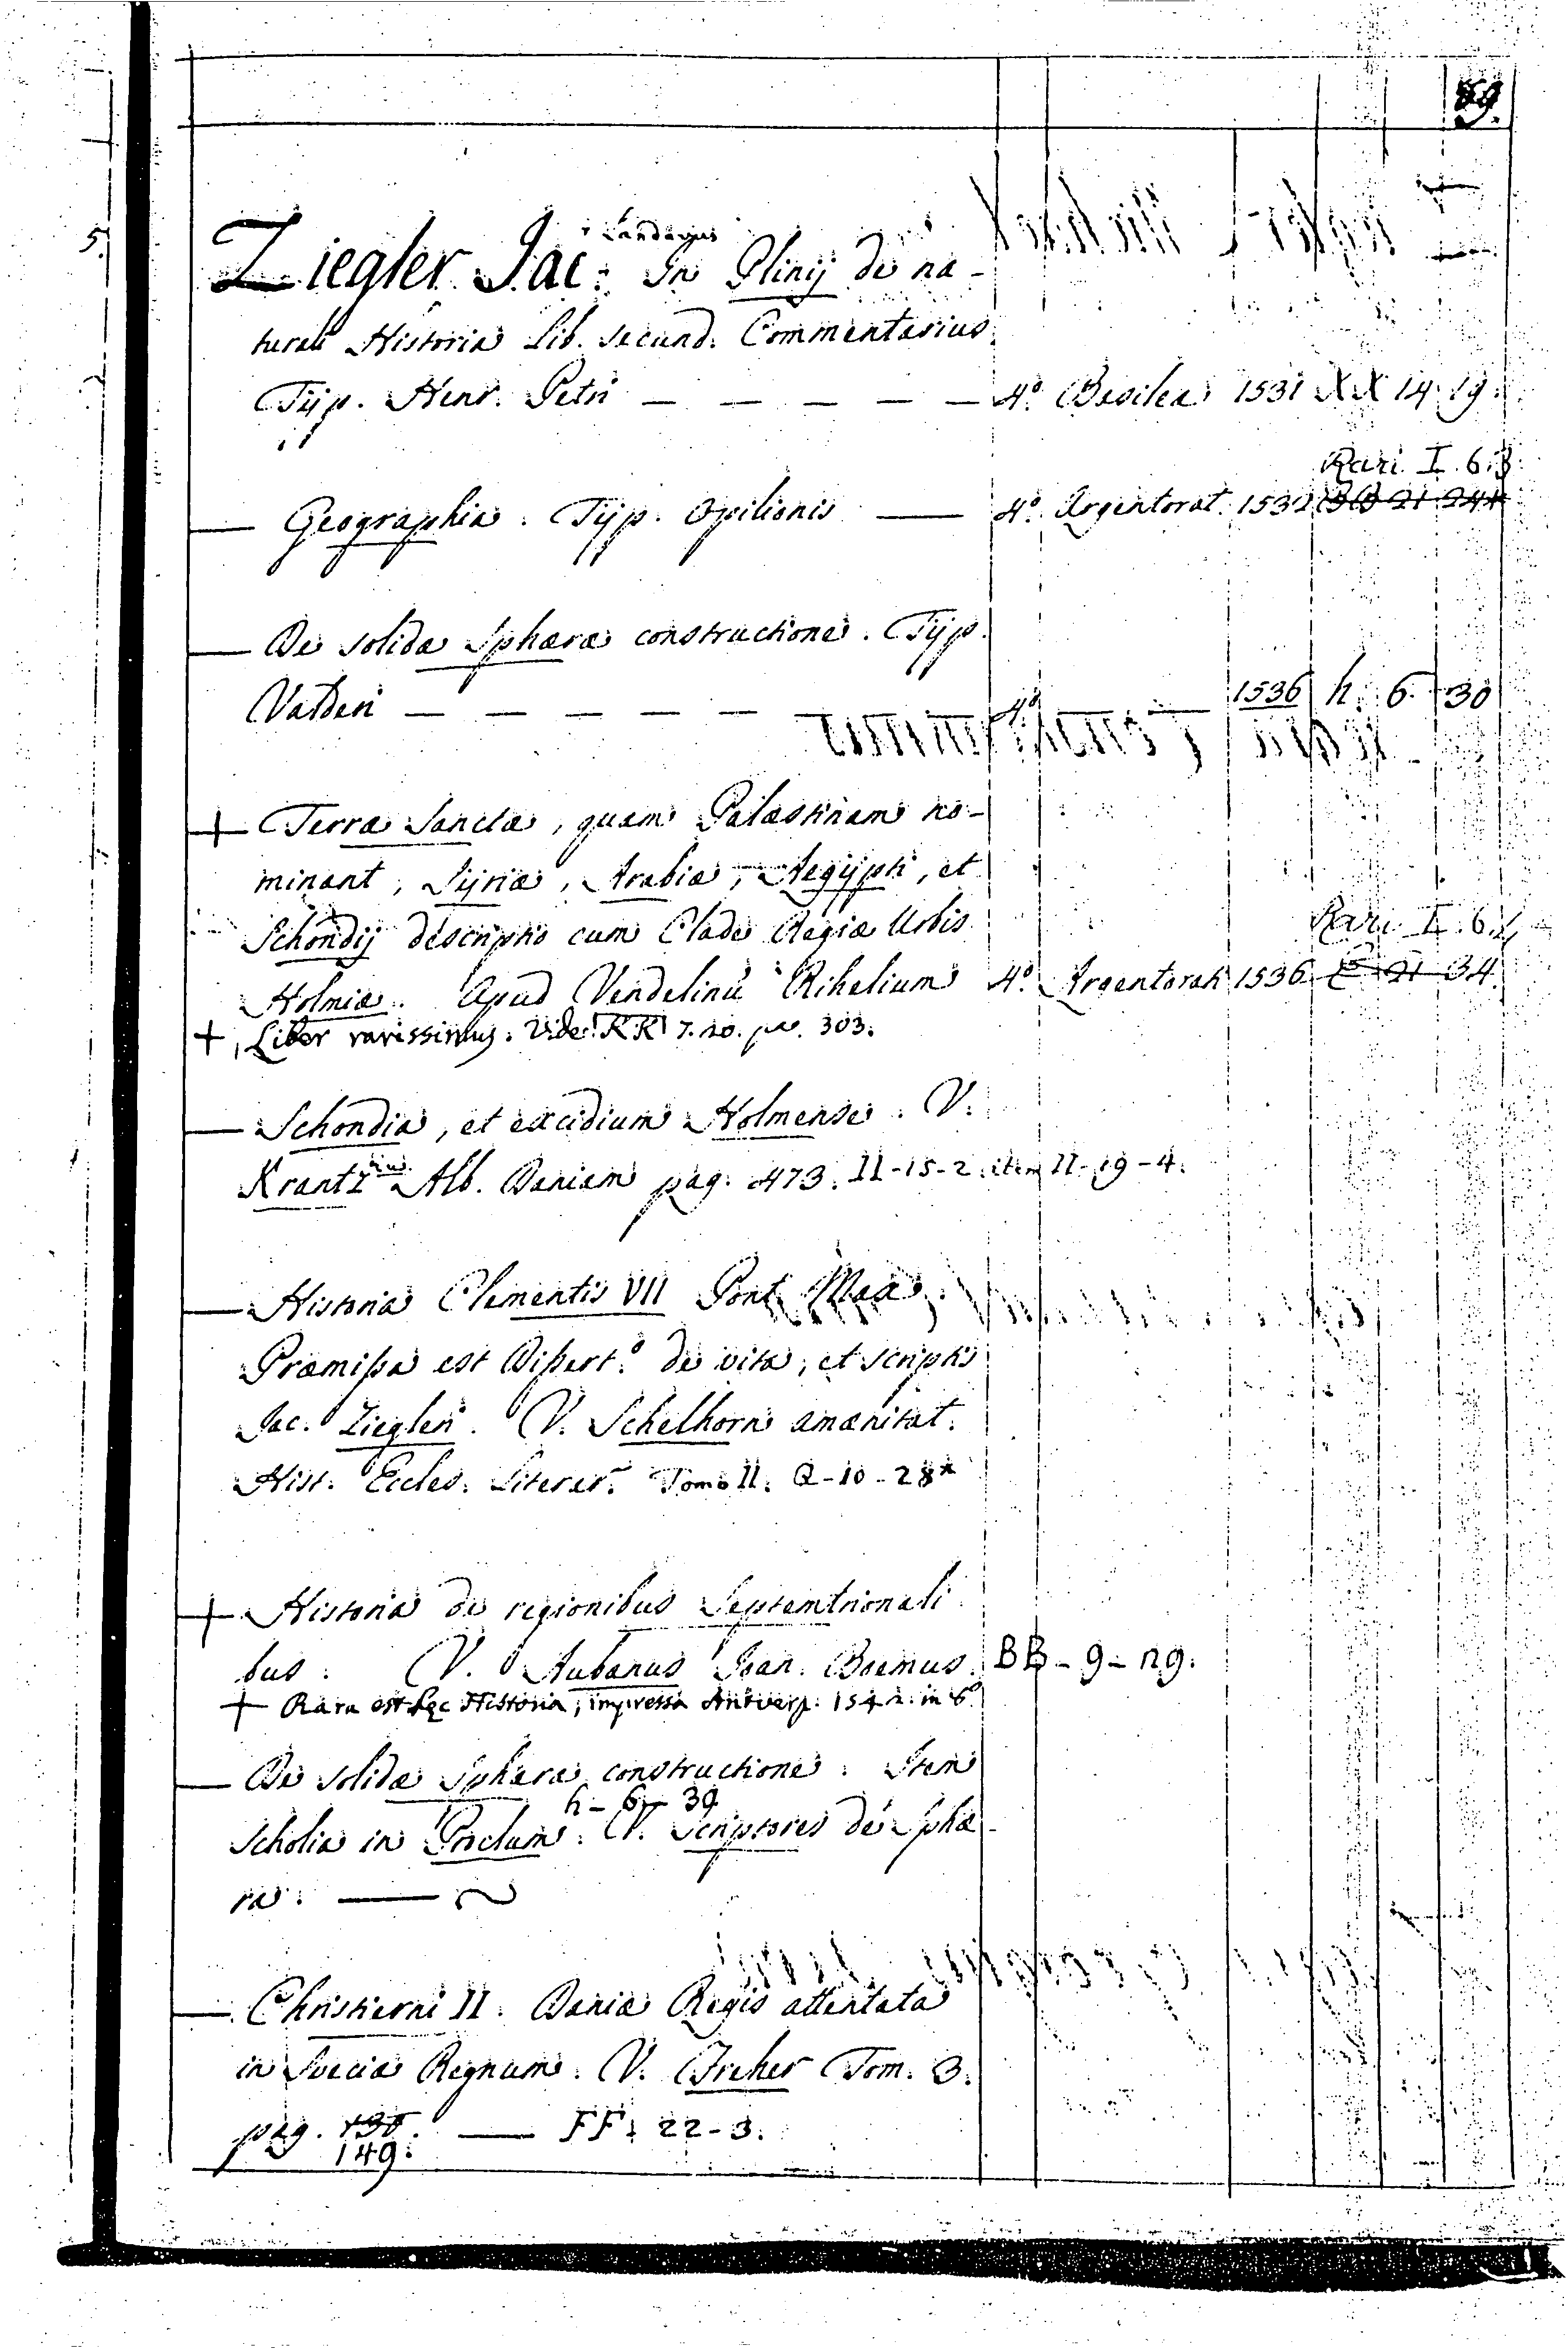 89.
Landavus
Ziegler Jac: In Plinij de na-
turali Historia Lib. secund. Commentarius
Typ. Henr. Petri — — — — — 4.° Basileæ 1531 XX 14 19.
Rari I. 6.
— Geographia. Typ. Opilionis — 4.° Argentorat. 1532
— De solidæ Sphæræ constructione. Typ.
Valderi — — — — — 4.° — 1536 h. 6. 30
+ Terræ Sanctæ, quam Palæstinam no-
minant, Syriæ, Arabiæ, Aegypti, et
Schondij descriptio cum Clade Regiæ Urbis
Rari I. 6.
Holmiæ. Apud Vendelinū Rihelium 4.° Argentorati 1536 21 34.
+ Liber rarissimus. Vide KK 7. 20. 303.
— Schondia, et excidium Holmense. V.
Krantzius Alb. Daniam pag. 473. II-15-2. item II-19-4.
— Historia Clementis VII Pont. Max.
Præmissa est Dissert.° de vita, et scriptis
Jac. Ziegleri. V. Schelhorn amænitat.
Hist. Eccles. Literar. Tomo II. Q-10-28*
+ Historia de regionibus Septemtrionali
bus. V. Aubanus Joan. Boemus. BB-9-29.
+ Rara est hęc Historia, impressa Antuerp. 1542. in 8.°
— De solidæ Sphæræ constructione. Item
h-6-30
Scholia in Proclum. V. Scriptores de Sphæ-
ra. —
— Christierni II. Daniæ Regis attentata
in Sueciæ Regnum. V. Freher Tom. 3.
pag. 130. — FF. 22-3.
149.